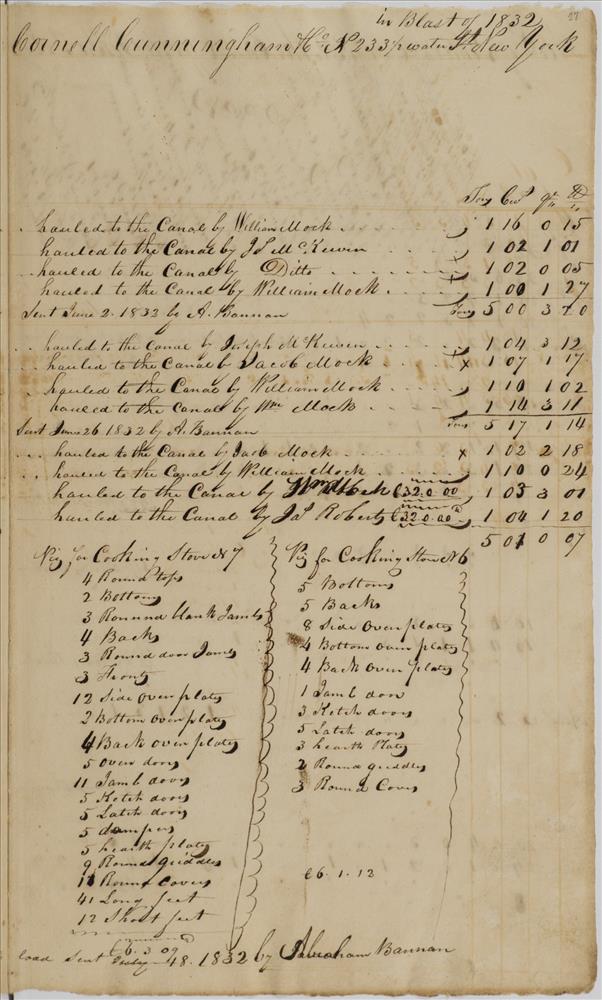 in Blast of 1832 27
Cornell Cunningham & Co No 233 water St New York
Tons Cwt qr lb
hauled to the Canal by William Mock 1 16 0 15
hauled to the Canal by Js McKewen 1 02 1 01
hauled to the Canal by Ditto 1 02 0 05
hauled to the Canal by William Mock 1 00 1 27
Sent June 2 1832 by A. Bannan Tons 5 00 3 20
hauled to the Canal by Joseph McKewen 1 04 3 12
hauled to the Canal by Jacob Mock x 1 07 1 17
hauled to the Canal by William Mock 1 10 1 02
hauled to the Canal by Wm Mock 1 14 3 11
Sent June 26 1832 by A. Bannan Tons 5 17 1 14
hauled to the Canal by Jacb Mock x 1 02 2 18
hauled to the Canal by William Mock 1 10 0 24
hauled to the Canal by Wm Mock 32.0.00 1 03 3 01
hauled to the Canal by Jas Roberts 32.0.00 1 04 1 20
5 01 0 07
Pig for Cooking Stove No 7
4 Round tops
2 Bottoms
3 Rounnd blank Jambs
4 Backs
3 Round door Jambs
3 Fronts
12 Side oven plates
2 Bottom oven plates
4 Back oven plates
5 oven doors
11 Jamb doors
5 Ketch doors
5 Latch doors
5 dampers
5 hearth plates
9 Round griddles
11 Round covers
41 Long feet
12 Short feet
6.3.09
Pig for Cooking Stove No 6
5 Bottoms
5 Backs
8 Side Oven plates
4 Bottom oven plates
4 Back oven plates
1 Jamb door
3 Ketch doors
5 Latch doors
3 hearth Plates
2 Round griddles
3 Round Covers
6.1.12
load Sent 18.1832 by Abraham Bannan